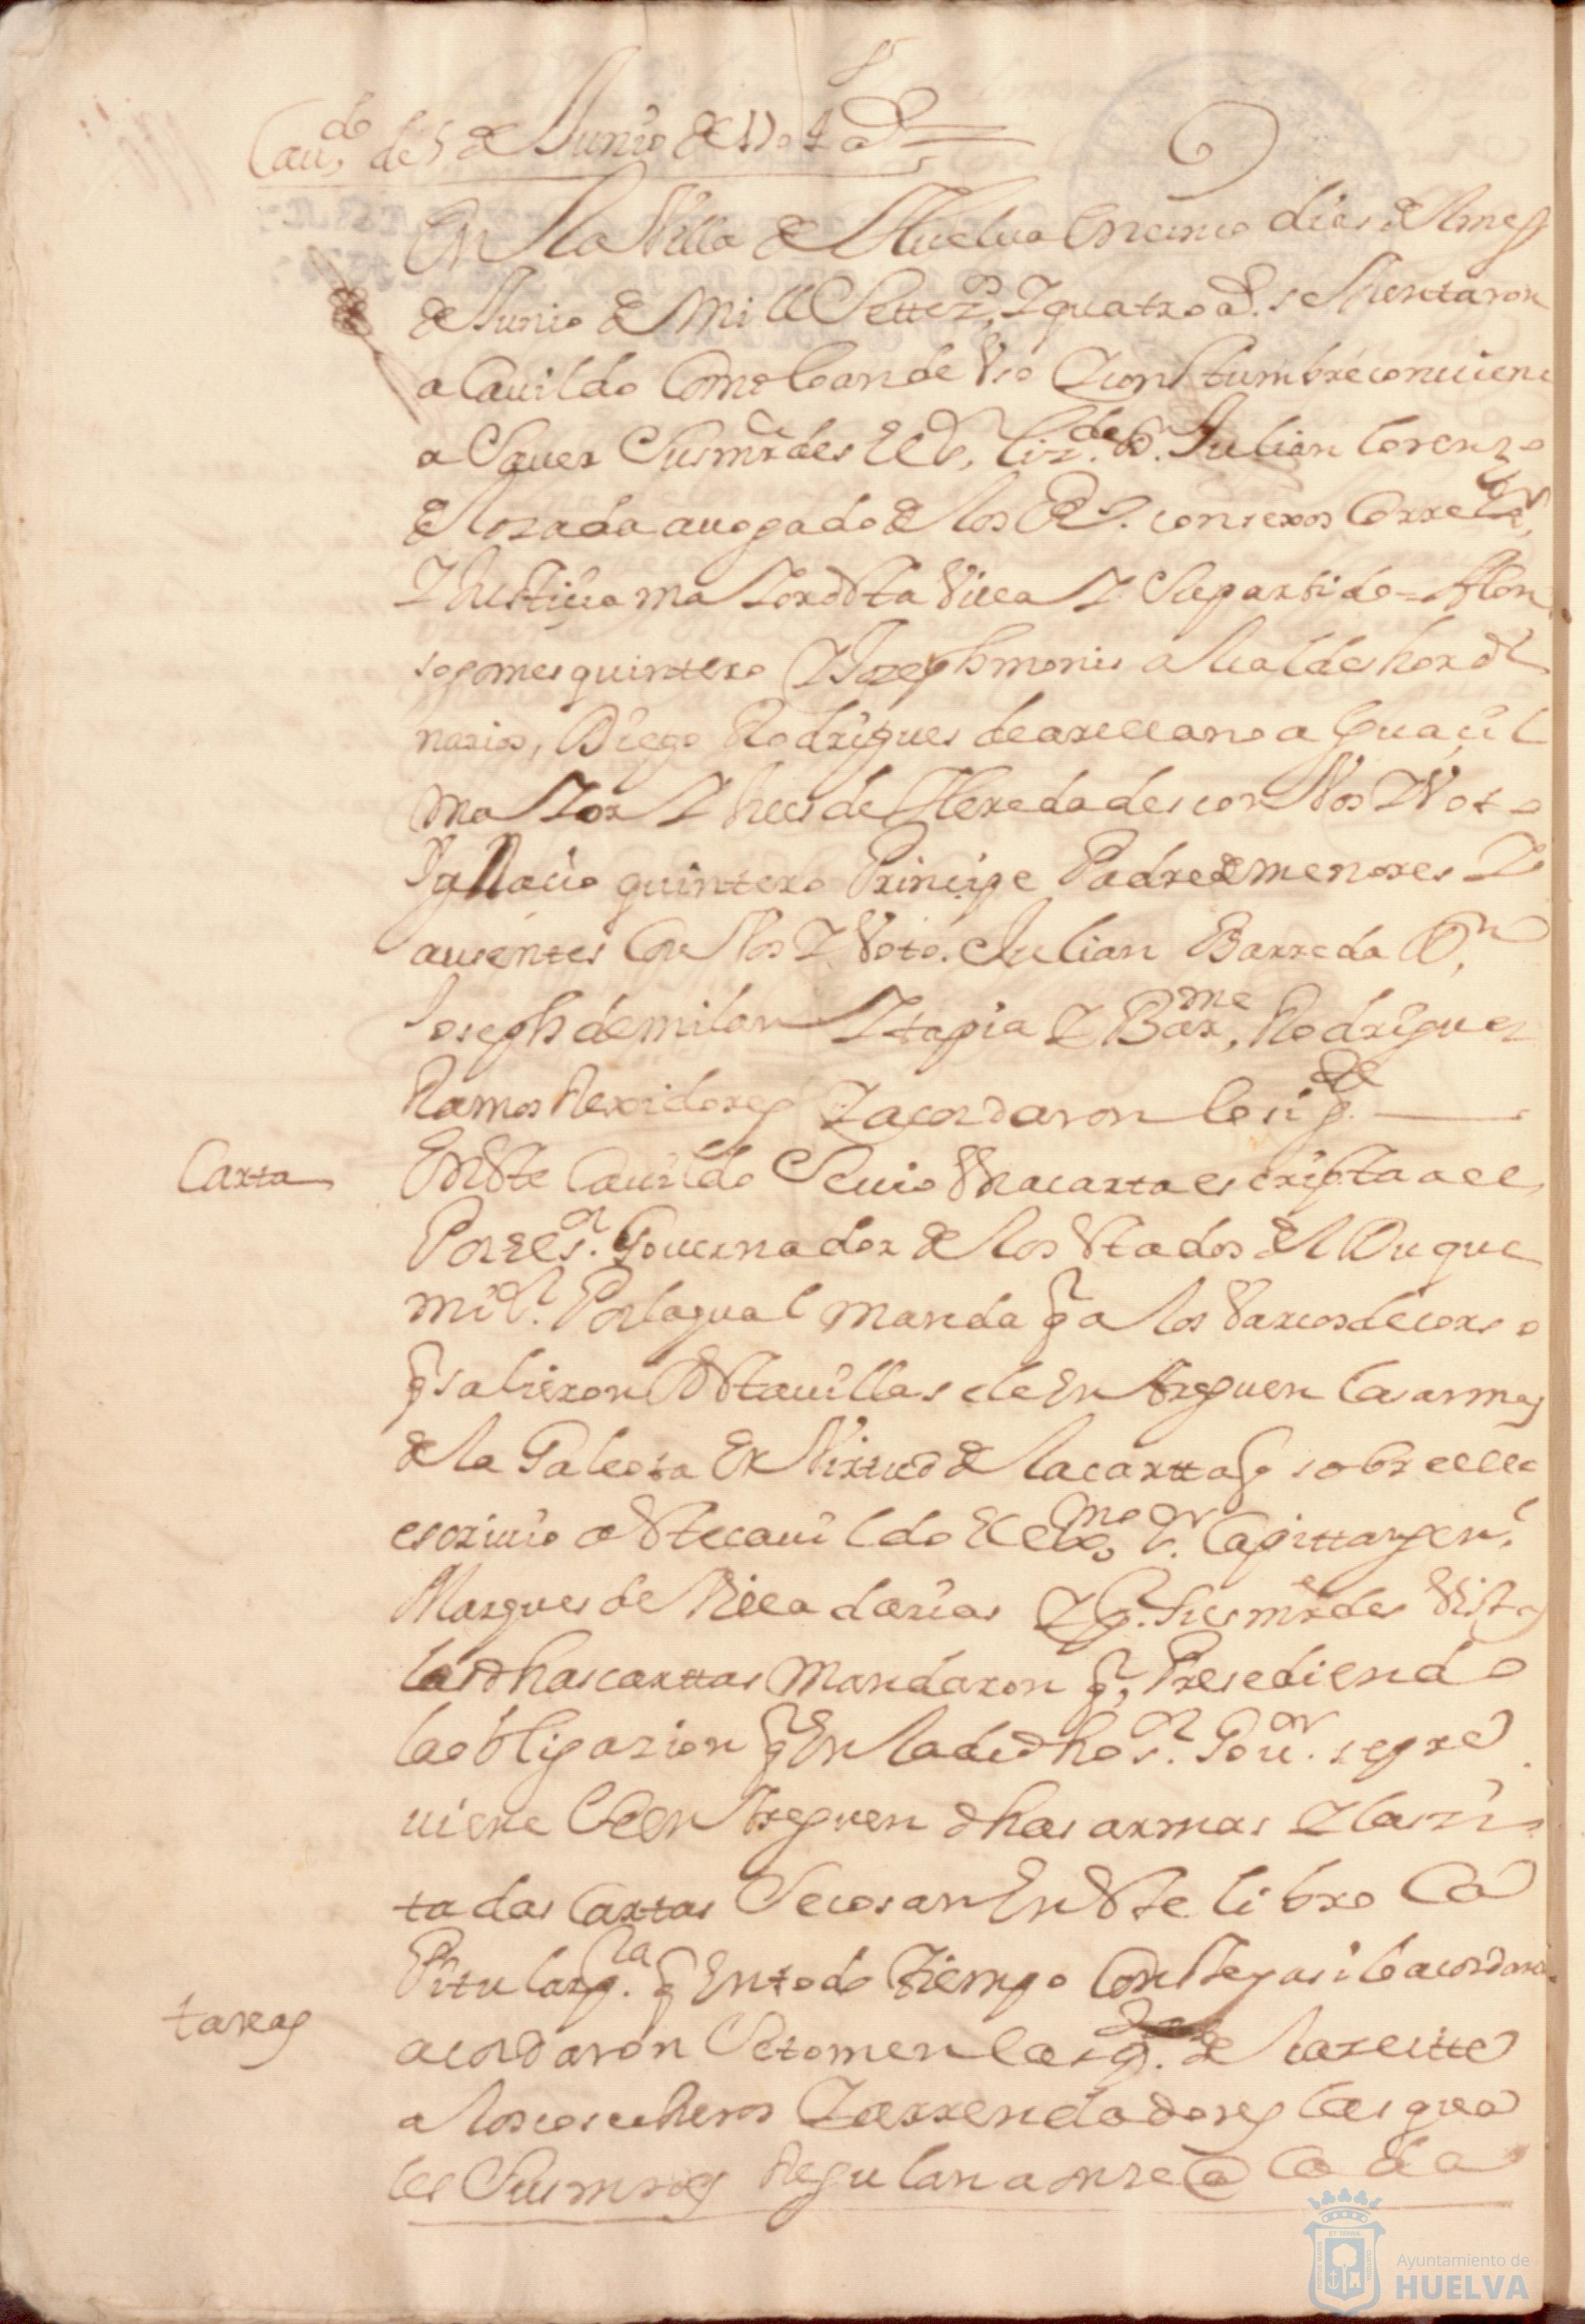 Cau.do de 5 de Junio de 1704 a.s
En la Villa de Huelva en cinco dias del mes
de Junio de mill Settez.os Y quatro a.s se Juntaron
a Cauildo Como lo an de Vso Y Constumbre conuiene
a Sauer Sus mrdes El S.r liz.do D. Julian lorenzo
de lozada auogado de los R.s consexos Correx.or
Y Justicia maYor desta Villa Y Su partido = Alon
so gomes quintero Y Joseph monis alcaldes hordi
narios, Diego Rodrigues de arellano alguacil
maYor Y Jues de Heredades con Vos Y Voto
Ygnacio quintero Principe Padre de menores Y
ausentes Con Vos Y Voto. Julian Barreda D.n
Joseph de milan Y tapia Y Bar.me Rodriguez
Ramos Rexidores Y acordaron lo sig.te
Carta
En este Cauildo Se uio Vna carta escripta a el
Por el s.or Gouernador de los estados del Duque
mi S.r Por la qual manda q a los Varcos de corso
q salieron desta uilla se le entreguen las armas
de la Galeota En Virtud de la cartta q sobre ello
escriuio a este cauildo el ex.mo s.or Capittan gen.l
Marques de Villa darias Y p.r Sus mrdes Vistas
las dhas carttas mandaron q, Presediendo
la obligazion q En la de dho s.or Gou.or se pre
uiene Se entreguen dhas armas Y las zi
tadas Cartas Se cosan En este libro Ca
Pitular p.a q En todo tiempo Conste Y asi lo acordaron
tareas
acordaron Se tomen las de lazeitte
a los cosecheros Y arrendadores las qua
les Sus mrdes Regulan a onze @ cada
Ayuntamiento de
HUELVA